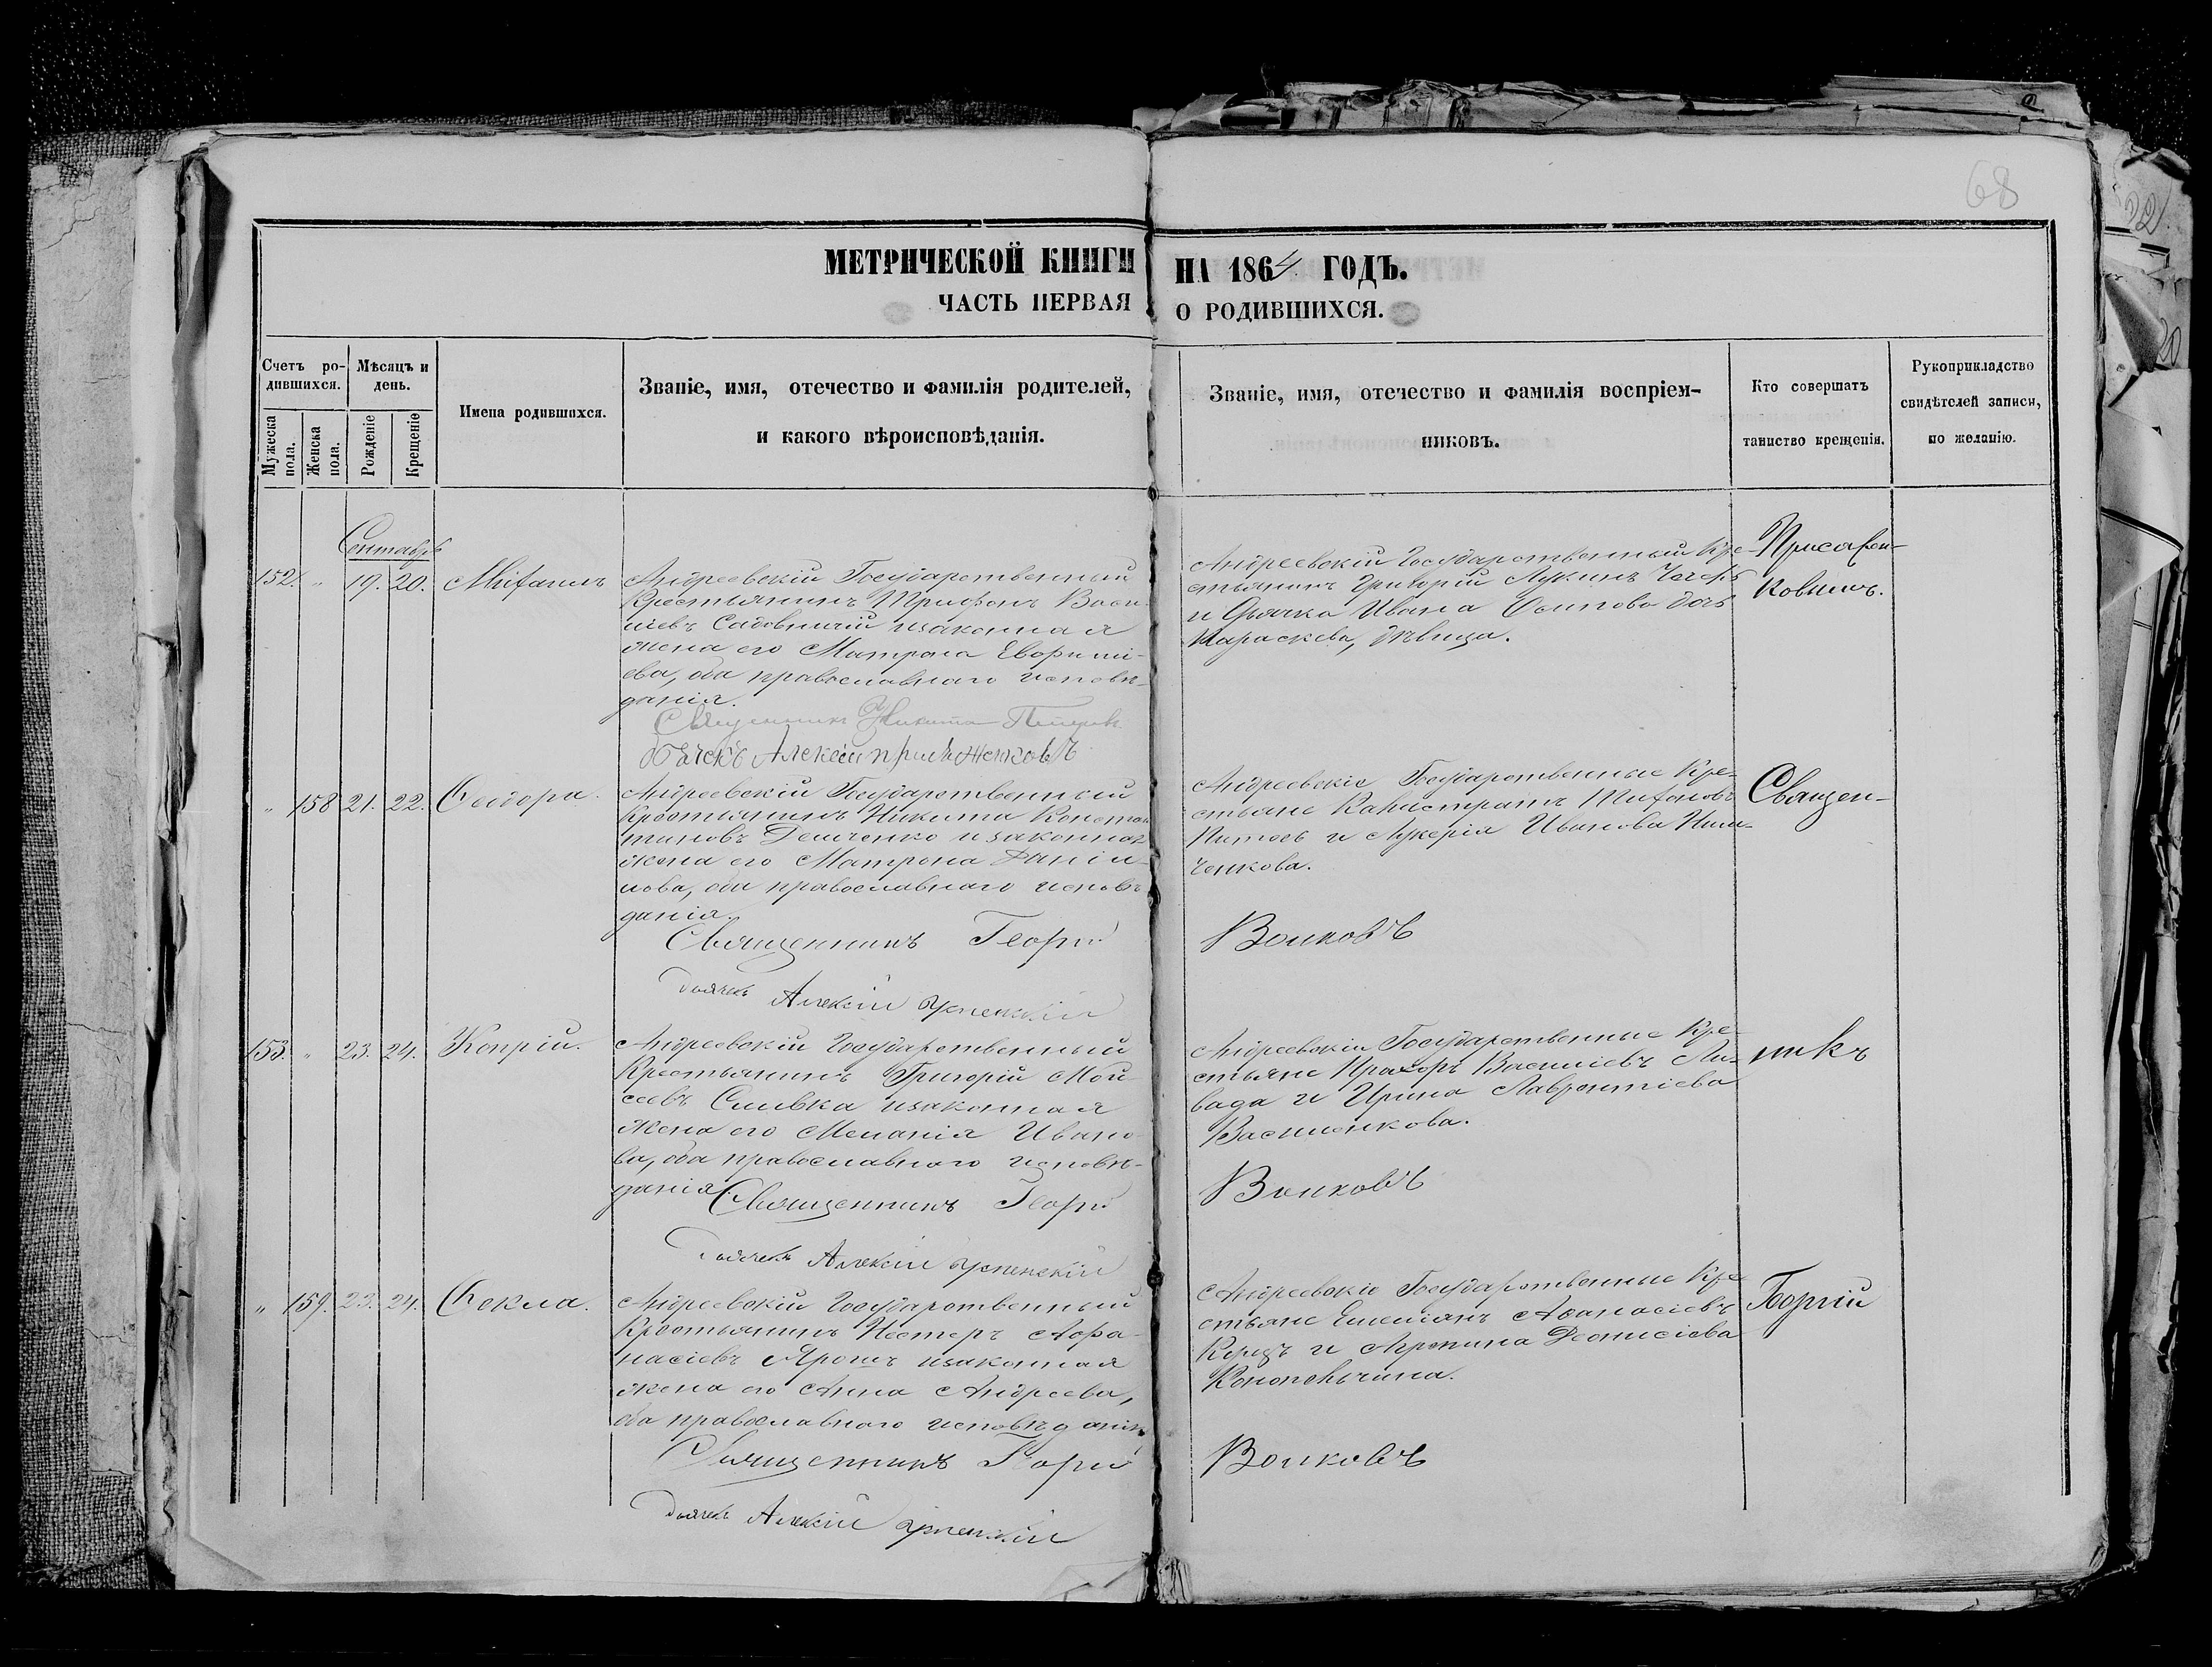 68
МЕТРИЧЕСКОЙ КНИГИ НА 1864 ГОДЪ.
ЧАСТЬ ПЕРВАЯ О РОДИВШИХСЯ.
Счетъ родившихся.
Мужеска пола.
Женска пола.
Мѣсяцъ и день.
Рожденіе
Крещеніе
Имена родившихся.
Званіе, имя, отечество и фамилія родителей,
и какого вѣроисповѣданія.
Званіе, имя, отечество и фамилія воспріем-
никовъ.
Кто совершатъ
таинство крещенія.
Рукоприкладство
свидѣтелей записи,
по желанію.
Сентябрь
152. " 19. 20.
Андреевскій Государственный
Крестьянинъ Трифонъ Васи-
ліевъ Садовничій и законная
жена его Матрона Евфимі-
ева, оба православнаго исповѣ-
данія.
Священникъ Никита
Дьячекъ Алексій
Андреевскій Государственный Кре-
стьянинъ Григорій Лукинъ
и Дьячка Ивана Осипова дочь
Параскева, дѣвица.
" 158 21. 22. Ѳеодора.
Андреевскій Государственный
Крестьянинъ Никита Констан
тиновъ Демченко и законная
жена его Матрона Даніи-
лова, оба православнаго исповѣ
данія.
Священникъ Георгій
Дьячекъ Алексій Успенскій
Андреевскіе Государственные Кре-
стьяне Калистратъ
и Лукерія Иванова
ченкова.
Волковъ
Священ-
153. " 23. 24. Копрій.
Андреевскій Государственный
Крестьянинъ Григорій Мои
сеевъ Сливка и законная
жена его Меланія Ивано
ва, оба православнаго исповѣ-
данія.
Священникъ Георгій
Дьячекъ Алексій Успенскій
Андреевскіе Государственные Кре-
стьяне Прохоръ Василіевъ Ли-
вада и Ирина Лаврентіева
Василенкова.
Волковъ
никъ
" 159. 23. 24. Ѳекла.
Андреевскій Государственный
Крестьянинъ Нестеръ Афа-
насіевъ Ярошъ и законная
жена его Анна Андреева,
оба православнаго исповѣданія
Священникъ Георгій
Дьячекъ Алексій Успенскій
Андреевскіе Государственные Кре
стьяне Емеліянъ Афанасіевъ
и Деонисіева
Волковъ
Георгій